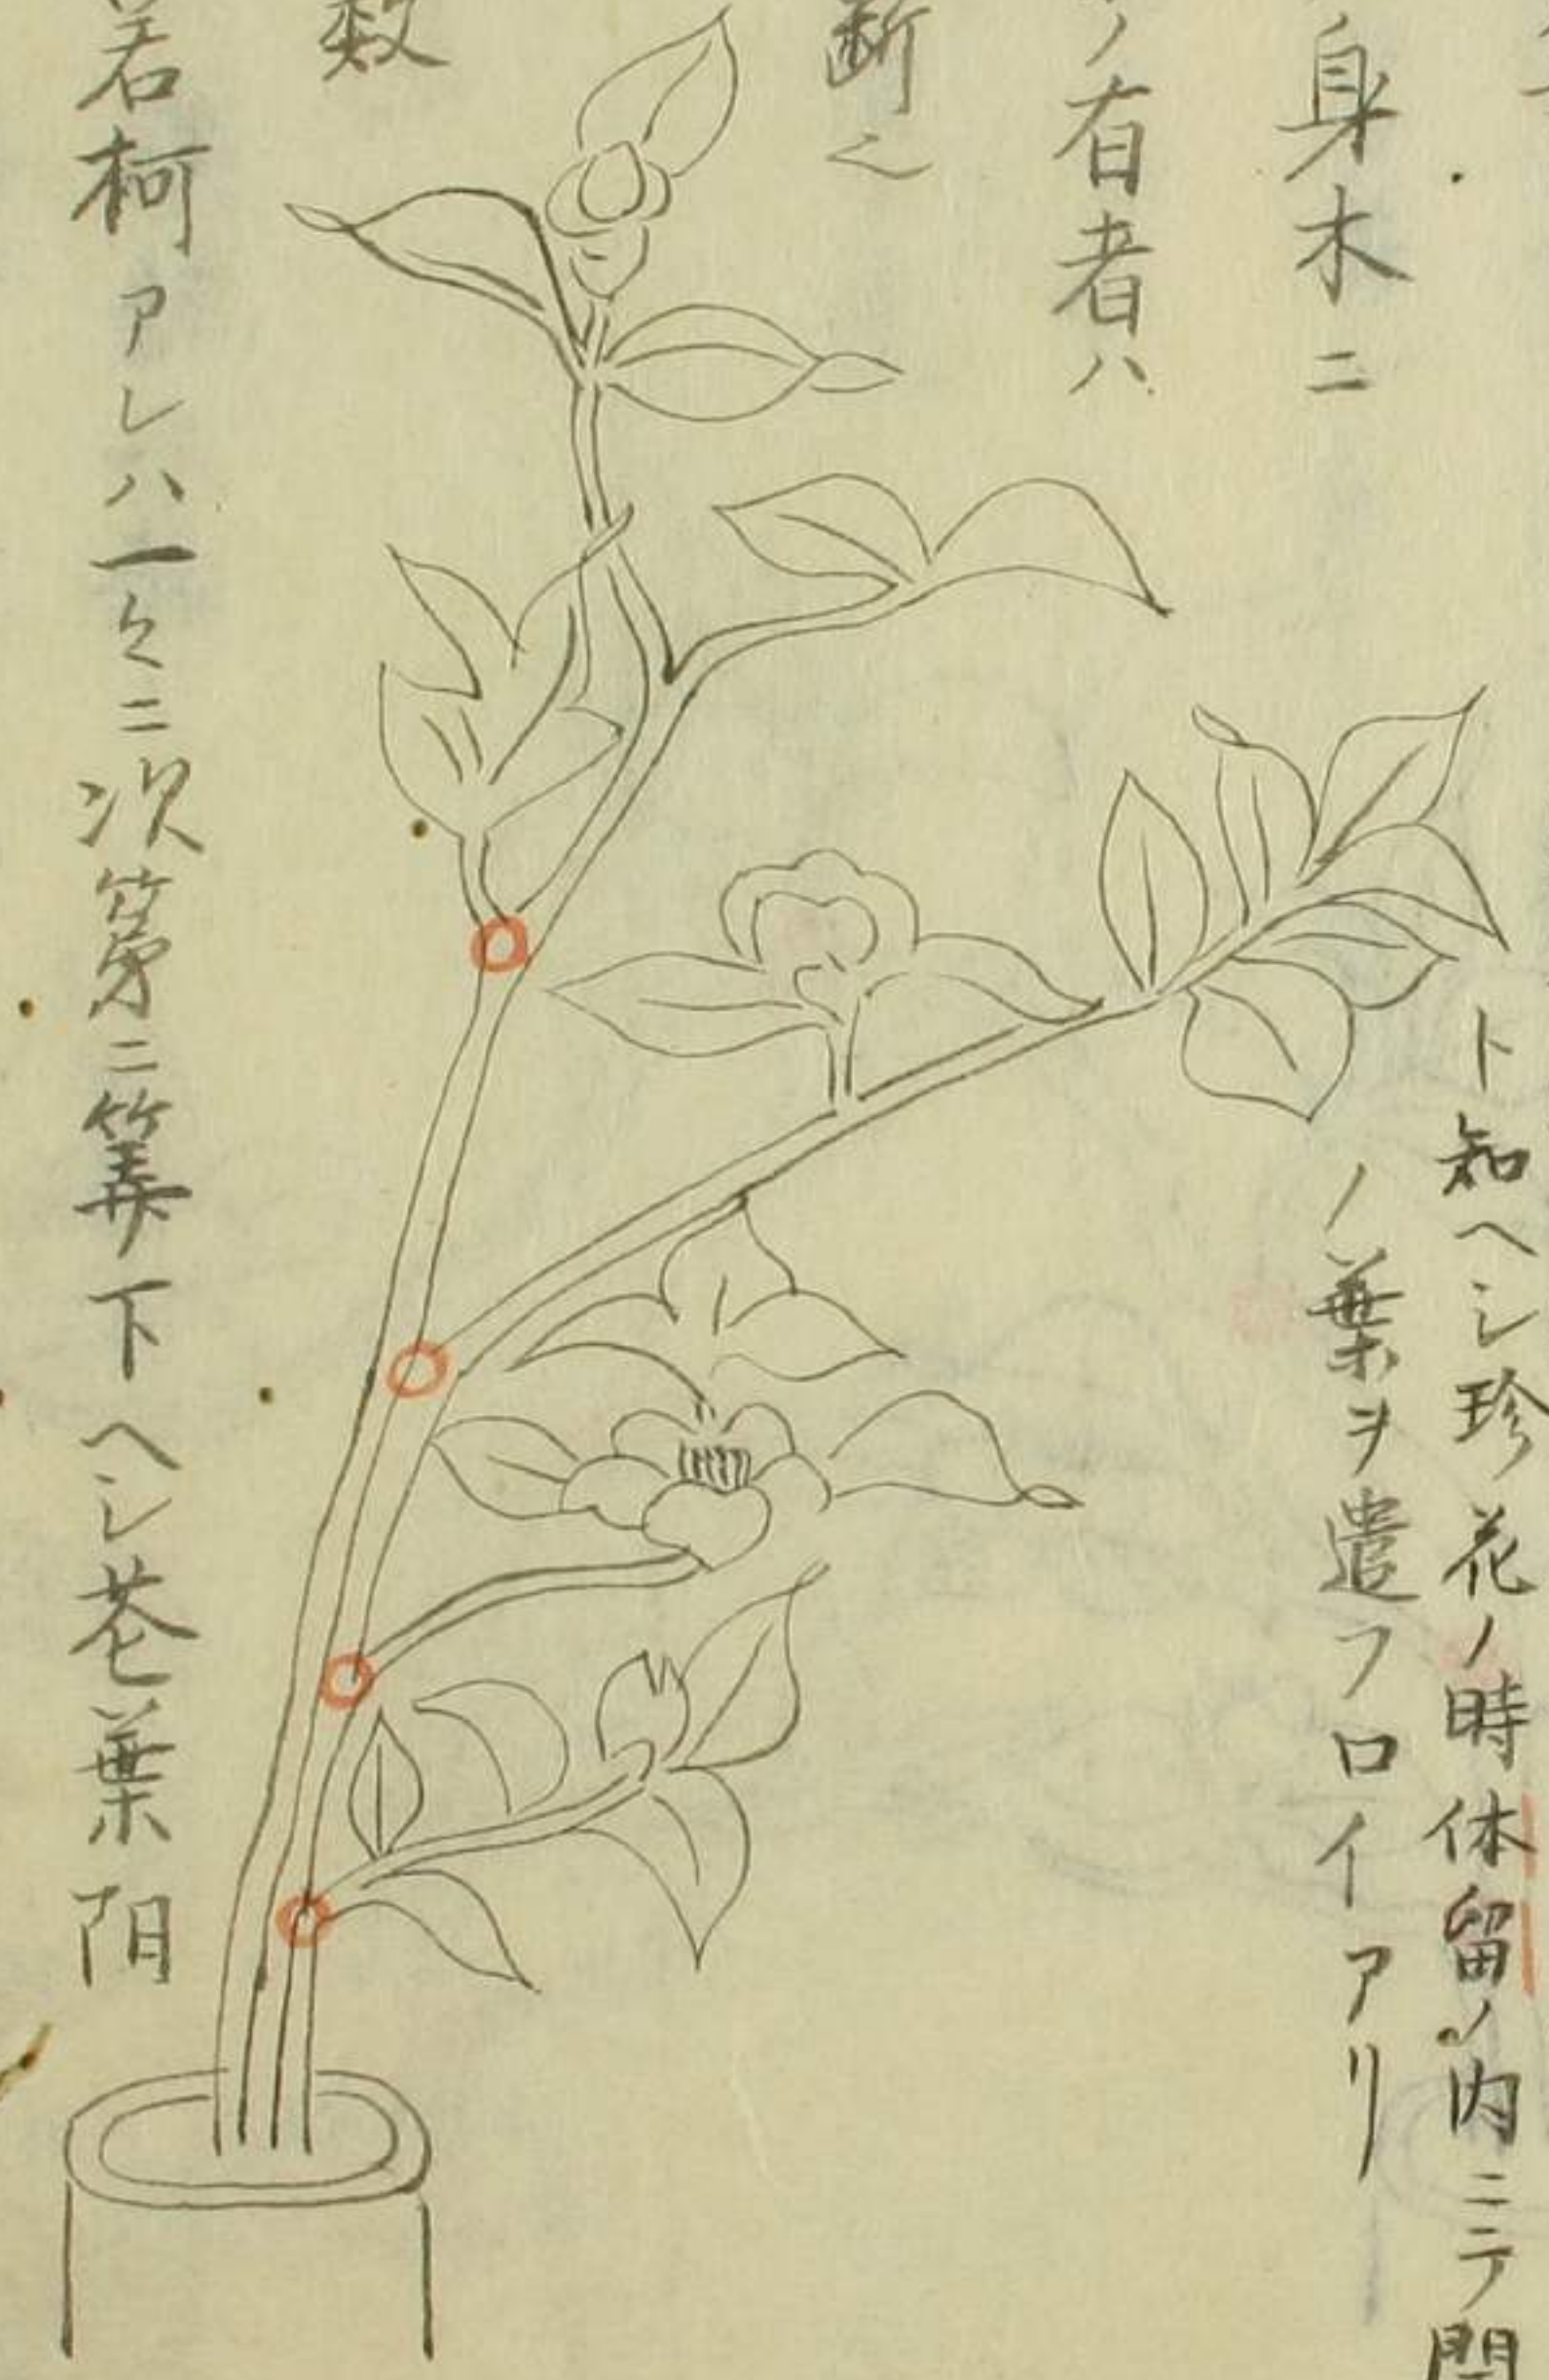 身木ニ
ノ有者ハ
断之
数
若柯アレハ一々ニ次第ニ算下ヘシ花葉阴
ト知ヘシ珍花ノ時体留ノ内ニテ開
ノ葉ヲ遣フロイアリ